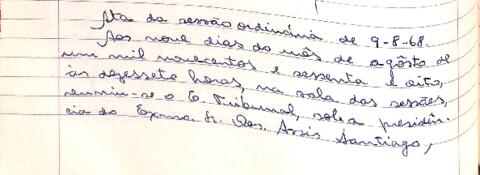 Ata da sessão ordinária de 9-8-68.
Aos nove dias do mês de agôsto de
um mil novecentos e sessenta e oito,
às dezessete horas, na sala das sessões,
reuniu-se o E. Tribunal, sob a presidên-
cia do Exmo. Sr. Des. Assis Santiago,